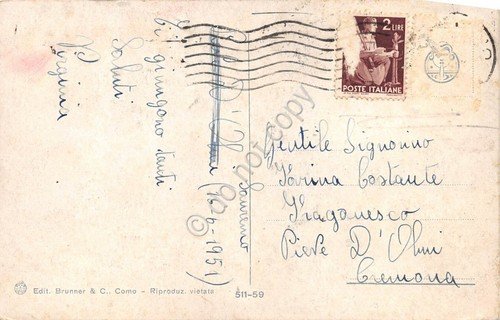 Ti giungono tanti
saluti
Virginia
Sanremo
(16-6-1951)
2 LIRE
POSTE ITALIANE
Gentile Signorino
Costante
Pieve D'Olmi
Cremona
Edit. Brunner & C., Como - Riproduz. vietata
511-59
do not copy